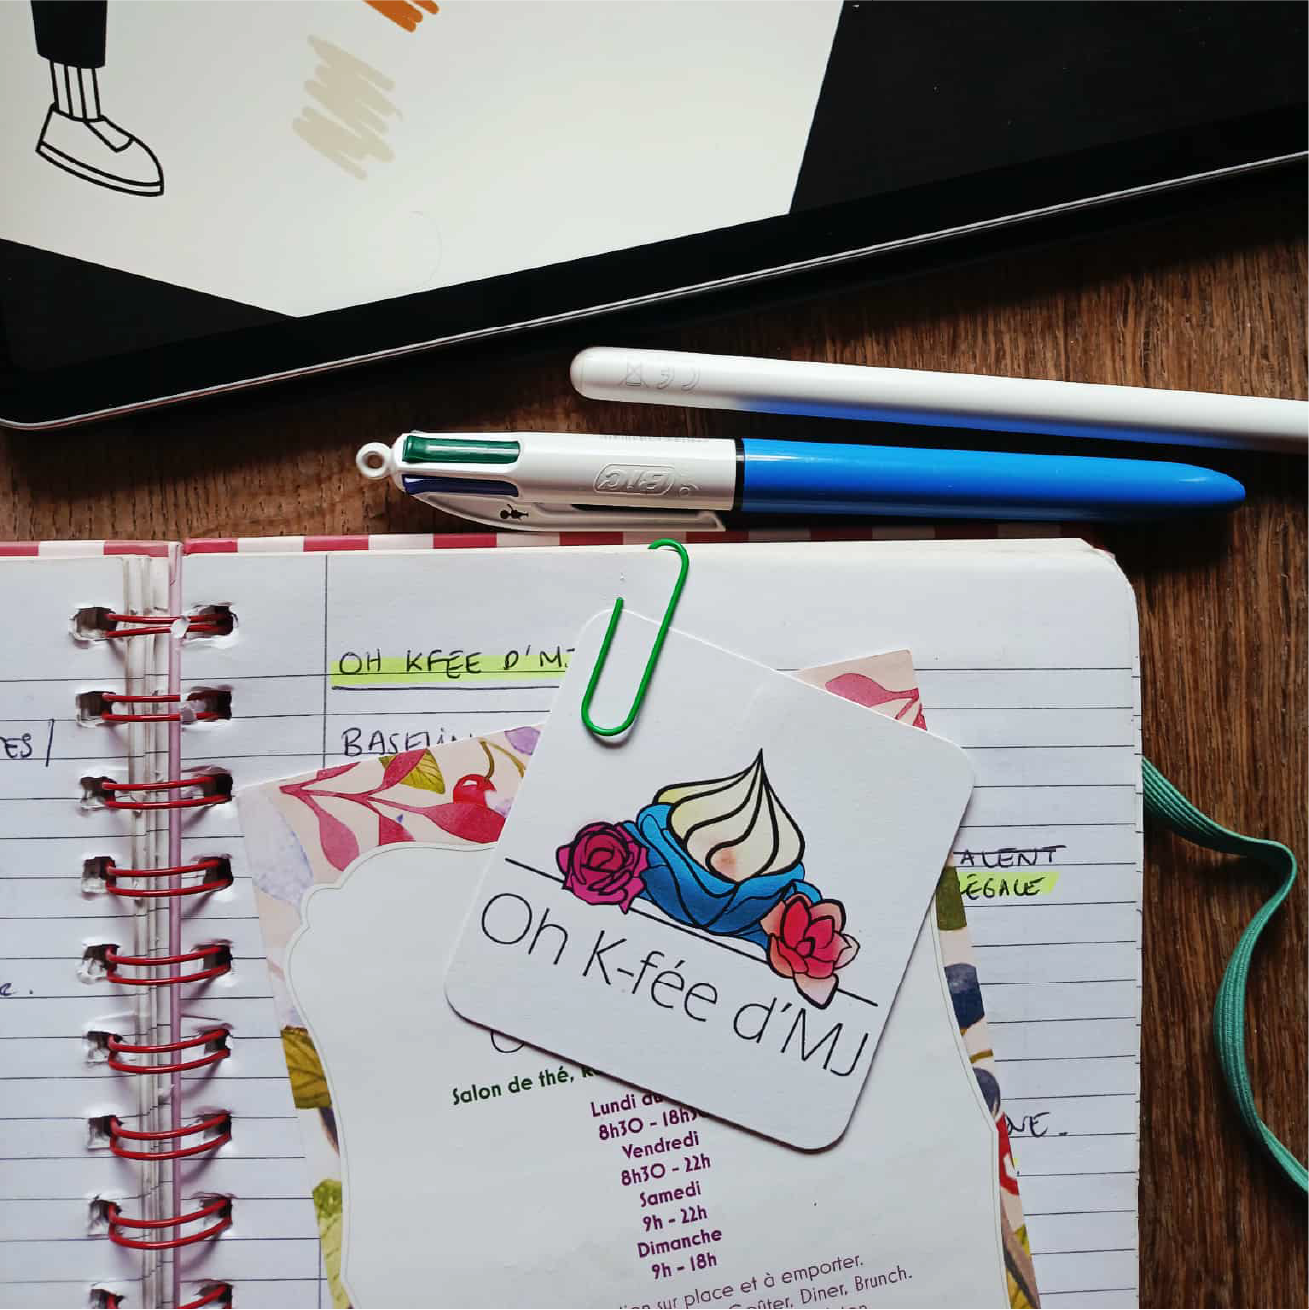 BIC
OH KFÉE D'M
ES/
BASELIN
ALENT
ÉGALE
Oh K-fée d'MJ
e.
Salon de thé,
Lundi au
8h30 - 18h30
Vendredi
8h30 - 22h
Samedi
9h - 22h
Dimanche
9h - 18h
sur place et à emporter.
Goûter, Diner, Brunch.